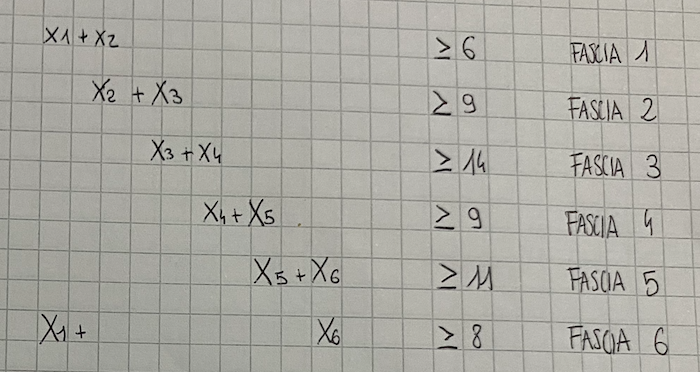 X1 + X2 ≥ 6 FASCIA 1
X2 + X3 ≥ 9 FASCIA 2
X3 + X4 ≥ 14 FASCIA 3
X4 + X5 ≥ 9 FASCIA 4
X5 + X6 ≥ 11 FASCIA 5
X1 + X6 ≥ 8 FASCIA 6